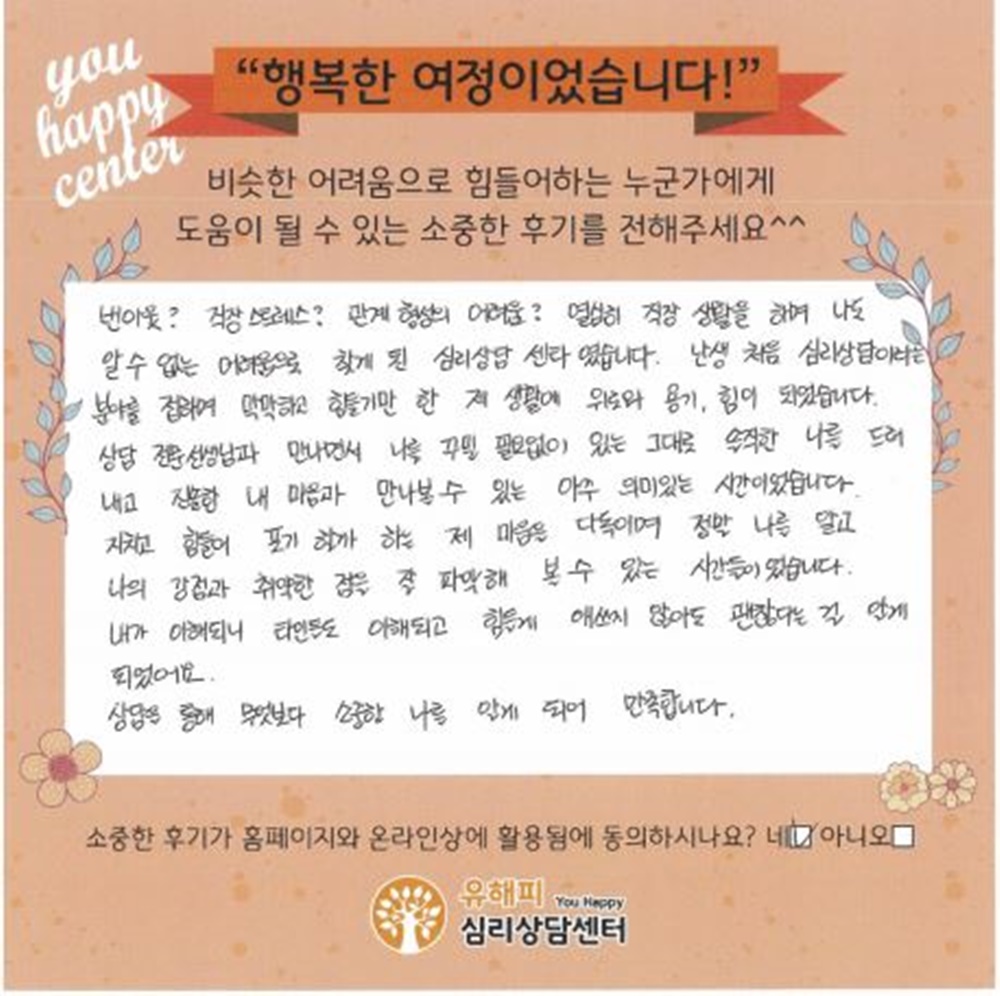 you
happy
center
“행복한 여정이었습니다!”
비슷한 어려움으로 힘들어하는 누군가에게
도움이 될 수 있는 소중한 후기를 전해주세요^^
번아웃? 직장 스트레스? 관계 형성의 어려움? 열심히 직장 생활을 하며 나도
알 수 없는 어려움으로 찾게 된 심리상담 센타 였습니다. 난생 처음 심리상담이라는
분야를 접하며 막막하고 힘들기만 한 제 생활에 위로와 용기, 힘이 되었습니다.
상담 전문선생님과 만나면서 나를 꾸밀 필요없이 있는 그대로 솔직한 나를 드러
내고 진솔한 내 마음과 만나볼 수 있는 아주 의미있는 시간이었습니다.
지치고 힘들어 포기 할까 하는 제 마음을 다독이며 정말 나를 알고
나의 강점과 취약한 점을 잘 파악해 볼 수 있는 시간들이었습니다.
내가 이해되니 타인들도 이해되고 힘들게 애쓰지 않아도 괜찮다는 걸 알게
되었어요.
상담을 통해 무엇보다 소중한 나를 알게 되어 만족합니다.
소중한 후기가 홈페이지와 온라인상에 활용됨에 동의하시나요? 네☑ 아니오☐
유해피 You Happy
심리상담센터